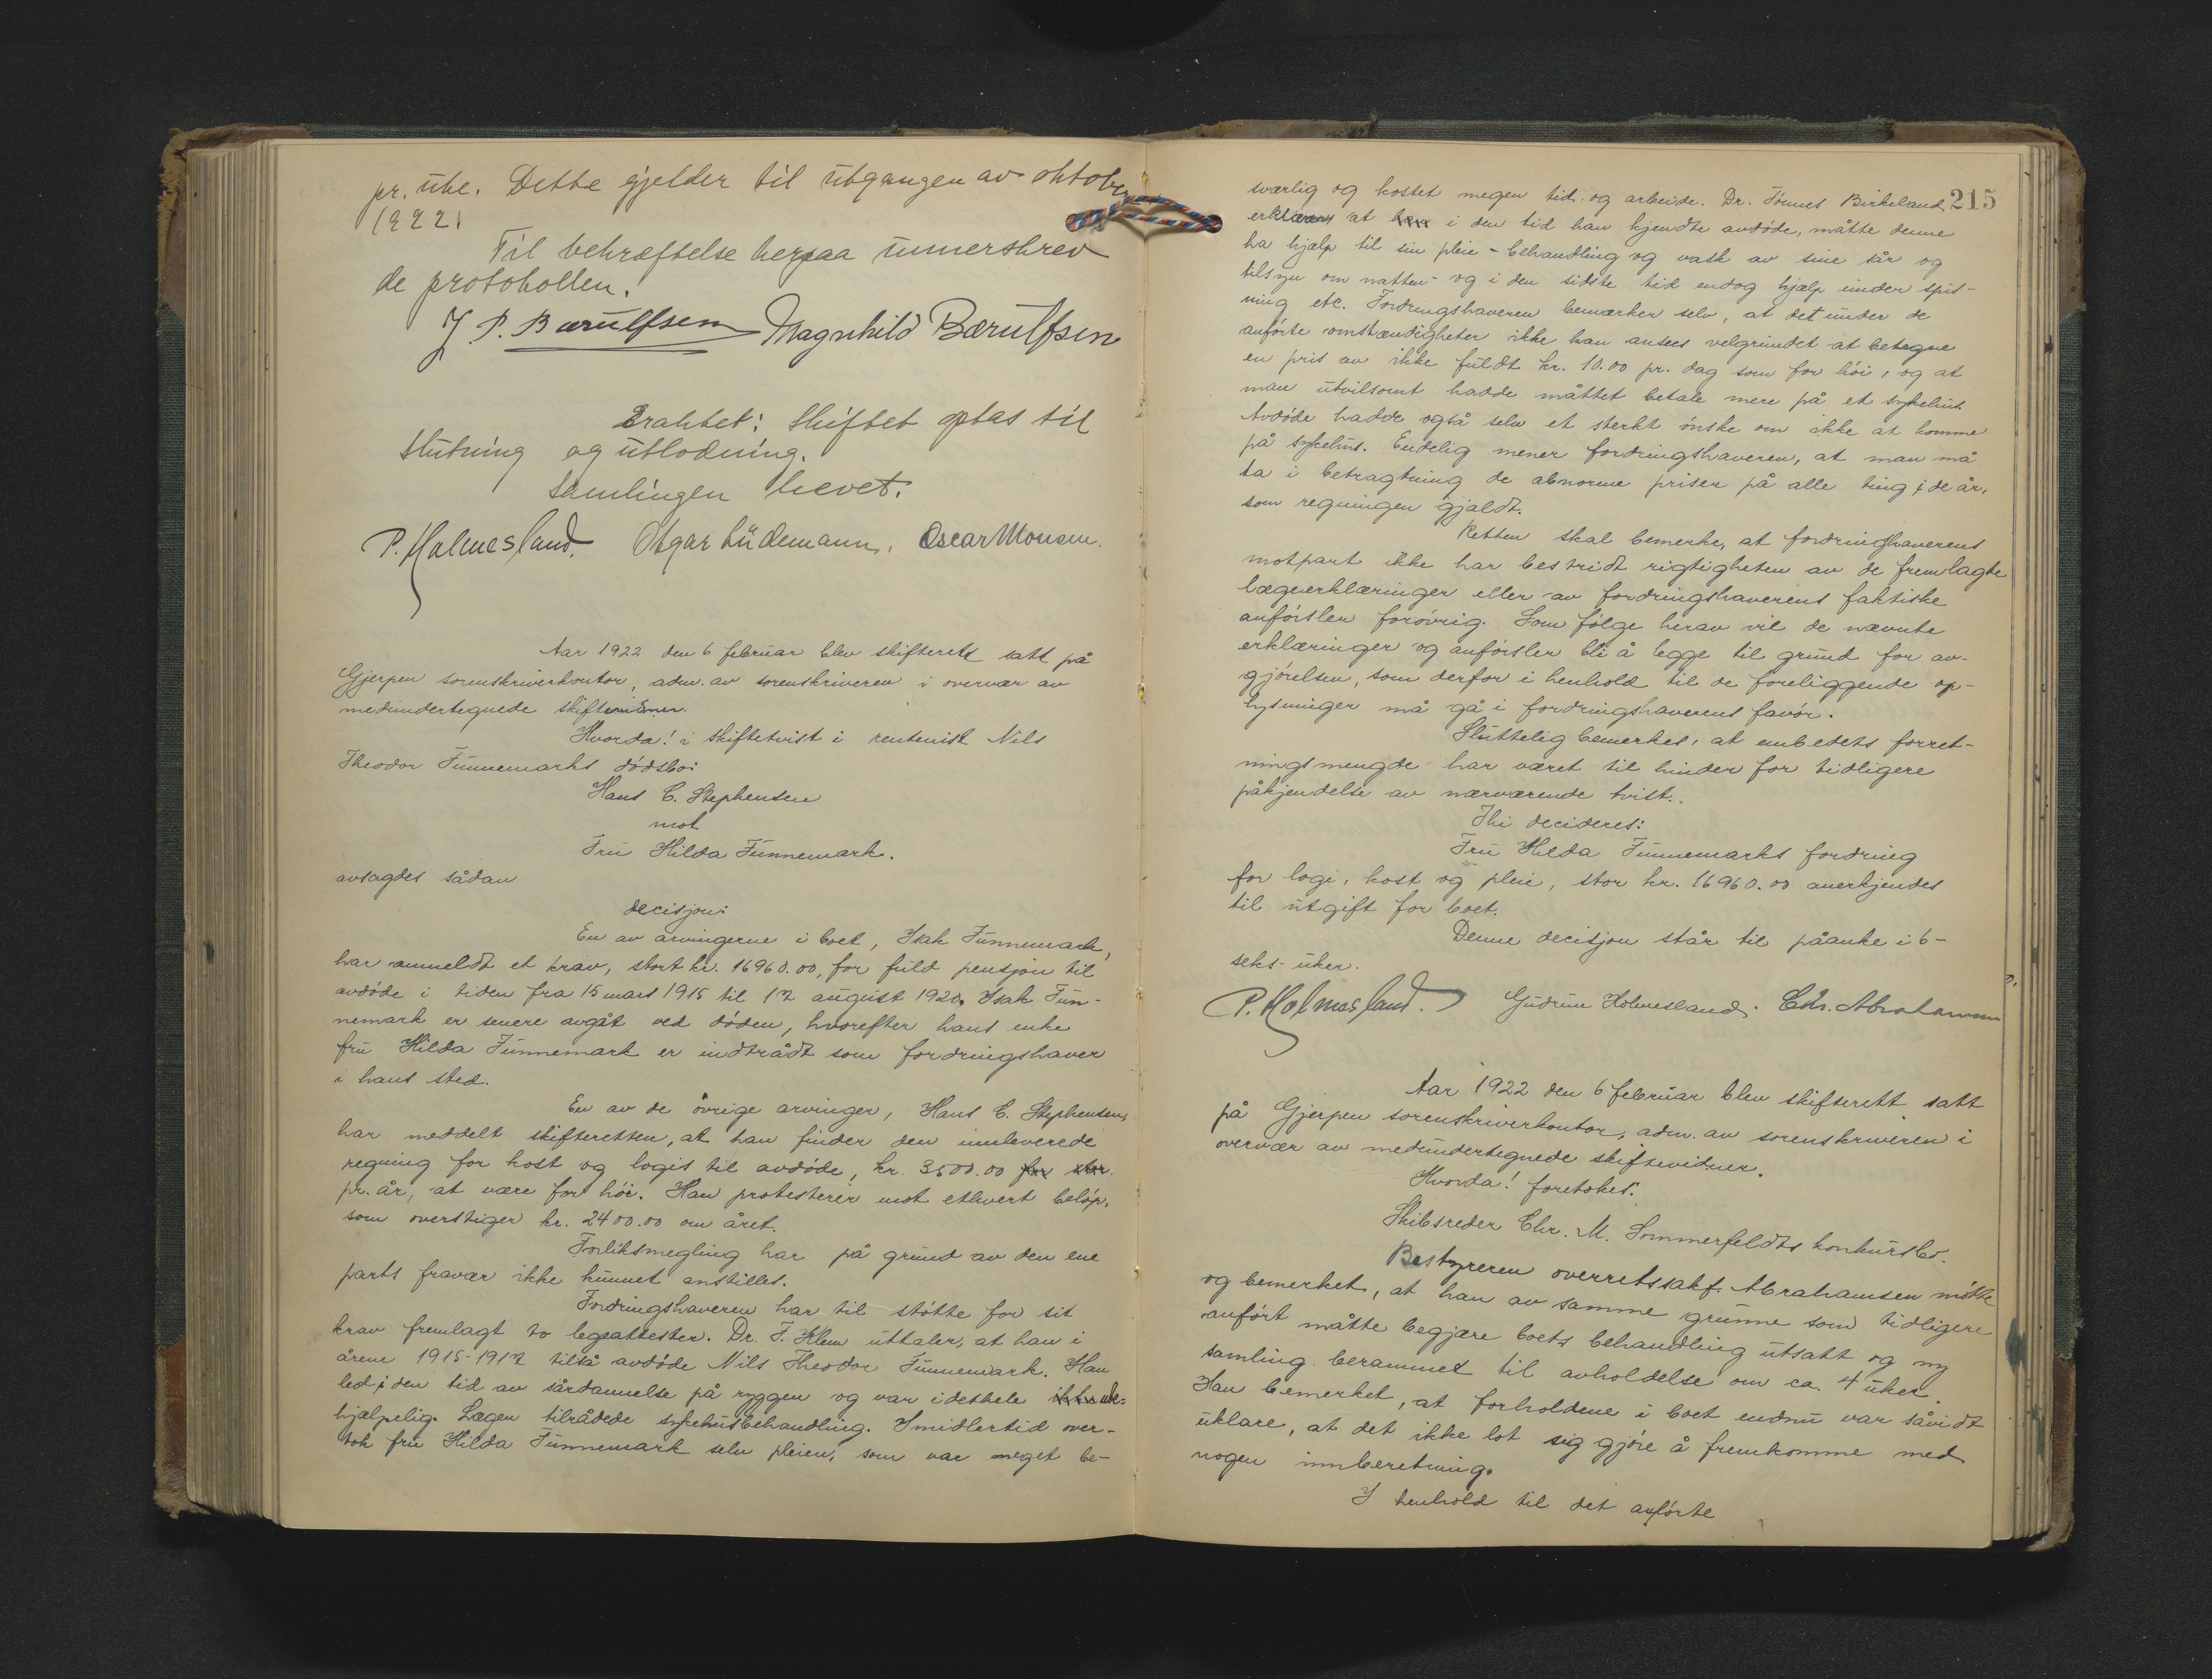 pr. uke. Dette gjelder til utgangen av oktober
1922.
Til bekræftelse herpaa unnerskrev
de protokollen.
J. P. Bærulfsen Magnhild Bærulfsen
Eraktet: Skiftet optas til
slutning og utlodning.
Samlingen hevet.
P. Holmesland. Otgar Lüdemann. Oscar Monsen.
Aar 1922 den 6 februar blev skifterett satt på
Gjerpen sorenskriverkontor, adm. av sorenskriveren i overvær av
medundertegnede skiftevidner.
Hvorda! i skiftetvist i rentenist Nils
Theodor Funnemarks dødsbo:
Hans C. Stephensen
mot
Fru Hilda Funnemark.
avsagdes sådan
decisjon:
En av arvingerne i boet, Isak Funnemark,
har anmeldt et krav, stort kr. 16960.00, for fuld pensjon til
avdøde i tiden fra 15 mars 1915 til 17 august 1920. Isak Fun-
nemark er senere avgåt ved døden, hvorefter hans enke
fru Hilda Funnemark er indtrådt som fordringshaver
i hans sted.
En av de øvrige arvinger, Hans C. Stephensen,
har meddelt skifteretten, at han finder den innleverede
regning for kost og logis til avdøde, kr. 3500.00
pr. år, at være for høi. Han protesterer mot ethvert beløp,
som overstiger kr. 2400.00 om året.
Forliksmegling har på grund av den ene
parts fravær ikke kunnet anstilles.
Fordringshaveren har til støtte for sit
krav fremlagt to legeattester. Dr. F. Klem uttaler, at han i
årene 1915-1917 tilså avdøde Nils Theodor Funnemark. Han
led i den tid av sårdannelse på ryggen og var idethele ube-
hjælpelig. Lægen tilrådede sykehusbehandling. Imidlertid over-
tok fru Hilda Funnemark selv pleien, som var meget be-
215
sværlig og kostet megen tid og arbeide. Dr. Tønnes Birkeland
erklærer at i den tid han kjendte avdøde, måtte denne
ha hjælp til sin pleie - behandling og vask av sine sår og
tilsyn om natten - og i den sidste tid endog hjælp under spis-
ning etc. Fordringshaveren bemærker selv, at det under de
anførte omstændigheter ikke kan ansees velgrundet at betegne
en pris av ikke fuldt kr. 10.00 pr. dag som for høi, og at
man utvilsomt hadde måttet betale mere på et sykehus.
Avdøde hadde også selv et sterkt ønske om ikke at komme
på sykehus. Endelig mener fordringshaveren, at man må
ta i betragtning de abnorme priser på alle ting i de år,
som regningen gjaldt.
Retten skal bemerke, at fordringshaverens
motpart ikke har bestridt rigtigheten av de fremlagte
lægeerklæringer eller av fordringshaverens faktiske
anførsler forøvrig. Som følge herav vil de nævnte
erklæringer og anførsler bli å legge til grund for av-
gjørelsen, som derfor i henhold til de foreliggende op-
lysninger må gå i fordringshaverens favør.
Sluttelig bemerkes, at embedets forret-
ningsmengde har været til hinder for tidligere
påkjendelse av nærværende tvist.
Thi decideres:
Fru Hilda Funnemarks fordring
for logi, kost og pleie, stor kr. 16960.00 anerkjendes
til utgift for boet.
Denne decisjon står til påanke i 6-
seks-uker.
P. Holmesland. Gudrun Holmesland. Chr. Abrahamsen
Aar 1922 den 6 februar blev skifterett satt
på Gjerpen sorenskriverkontor, adm. av sorenskriveren i
overvær av medundertegnede skiftevidner.
Hvorda! foretokes:
Skibsreder Chr. M. Sommerfeldts konkursbo.
Bestyreren overretssakf. Abrahamsen møtte
og bemerket, at han av samme grunne som tidligere
anført måtte begjære boets behandling utsatt og ny
samling berammet til avholdelse om ca. 4 uker.
Han bemerket, at forholdene i boet endnu var såvidt
uklare, at det ikke lot sig gjøre å fremkomme med
nogen innberetning.
I henhold til det anførte